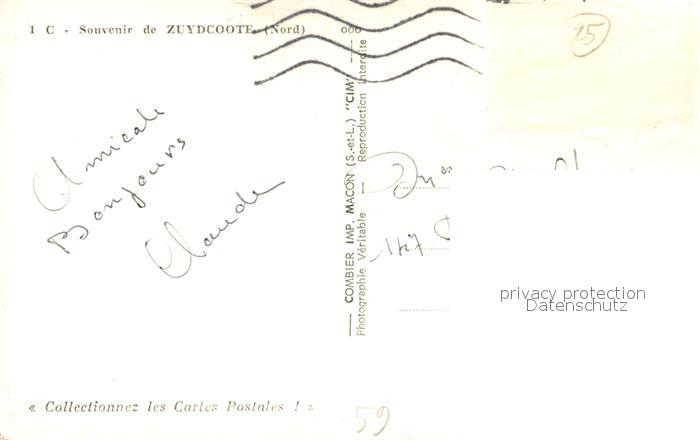 1 C - Souvenir de ZUYDCOOTE (Nord)
25
Amicale
Bonjours
Claude
COMBIER IMP. MACON (S.-et-L.) "CIM"
Photographie Véritable — Reproduction Interdite
147
privacy protection
Datenschutz
« Collectionnez les Cartes Postales ! »
59